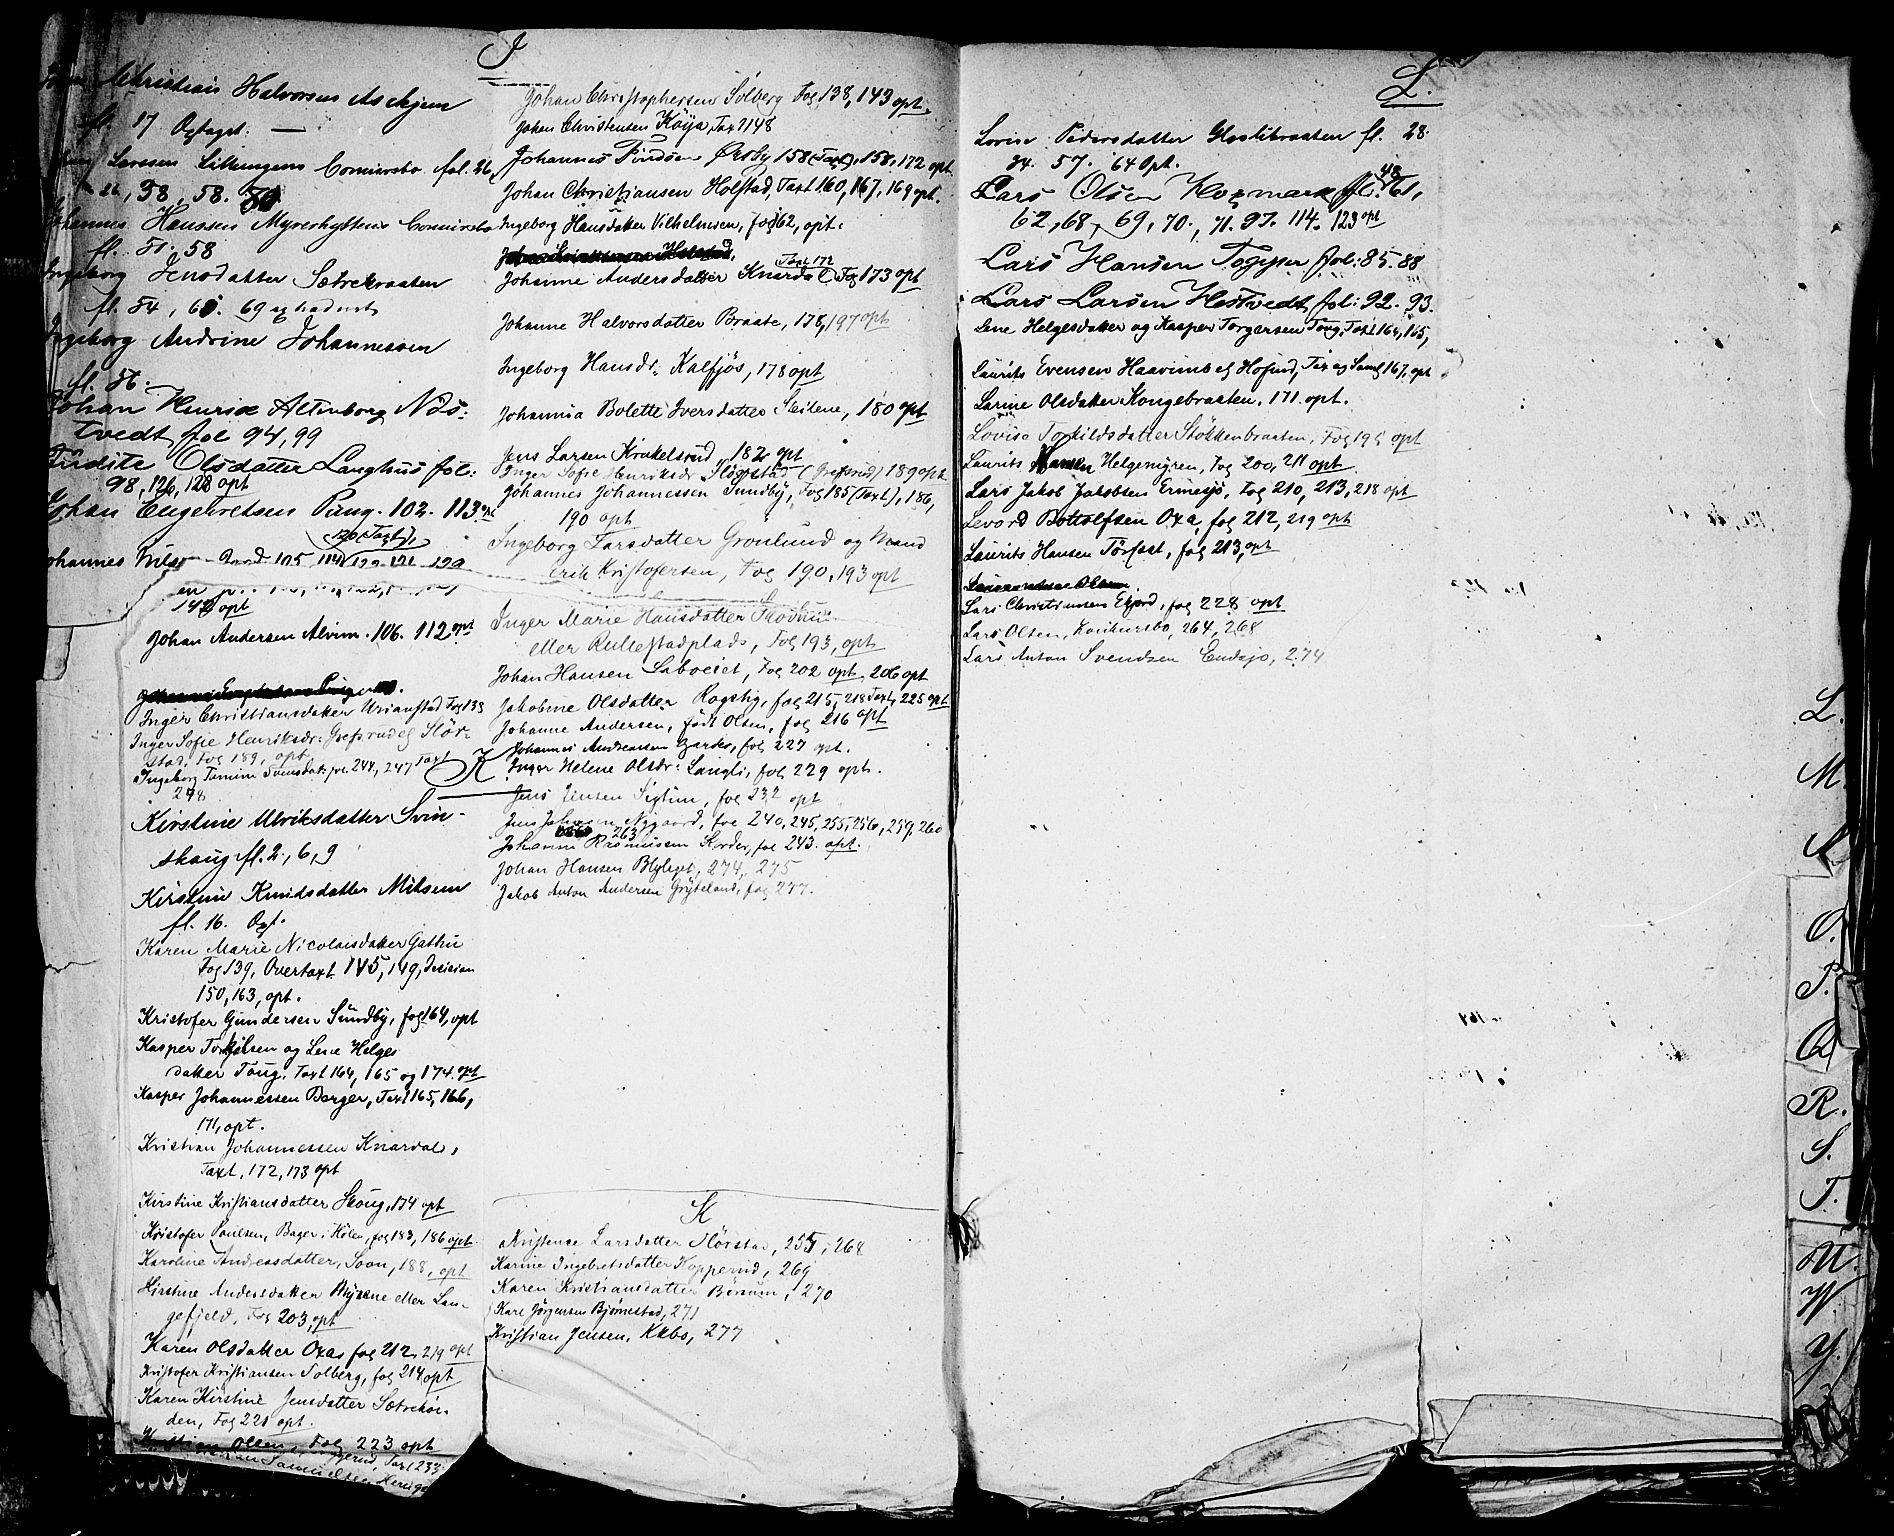 J
Christian Halvorsen Askjem
fl. 17 Optaget. —
Larssen Connersbo fol. 26
26, 38, 58.
Johannes Hanssen Myrerhytten
fl. 51. 58
Ingeborg Jensdatter Sætrebraaten
fl. 54, 69
Ingeborg Andrine Johannessen
fl. 56.
Johan Henrik Altenborg Nds:
tvedt, fol 94, 99
Olsdatter Langhus fol:
98, 126, 128 opt
Johan Engebretsen Pung. 102. 113 opt
120 (Taxt),
Johannes Nilsen 105 114 120
142 opt
Johan Andersen Alvim. 106. 112 opt
Inger Christiansdatter Fog 133
Inger Sofie Henriksdr: Grefsrud eg Slör-
stad, Fog 189, opt
Ingeborg fol 244, 247 Taxt
248
K
Kirstine Ulriksdatter Svin-
skaug fl. 2, 6, 9
Kirstine Knudsdatter
fl. 16. Opt.
Karen Marie Nicolaisdatter Gathu
Fog 139, Overtaxt 145, 149, Decision
150, 163, opt.
Kristofer Gundersen Sundby, fog 164, opt
Kasper og Lene Helges
datter Toug, Taxt 164, 165 og 174 opt
Kasper Johannessen Berger, Taxt 165, 166,
171, opt.
Kristian Johannessen Knardal,
Taxt, 172, 173 opt
Kirstine Kristiansdatter Skoug, 174 opt
Kristofer Paulsen, Bager i Hölen, fog 183, 186 opt
Karoline Andreasdatter, Soon, 188, opt
Kirstine Andersdatter Myrene eller Lan-
gefjeld, Fog 203, opt
Karen Olsdatter Oxa, fog 212, 219 opt
Kristofer Kristiansen Solberg, fog 214 opt
Karen Kirstine Jensdatter Sætrehöi-
den, Fog 221 opt.
Kristian Olsen, Fog 223 opt
Taxt 233
Johan Christophersen Solberg Fog 138, 143 opt.
Johan Christensen Köya, Taxt 148
Johannes Örsby 158 (Taxt), 158, 172 opt
Johan Christiansen Holstad, Taxt 160, 167, 169 opt.
Ingeborg Hansdatter Vilhelmsen, fog 162, opt.
Taxt 172
Johanne Andersdatter Knardal, Fog 173 opt
Johanne Halvorsdatter Braate, 178, 197 opt
Ingeborg Hansdr. Kalfjös, 178 opt
Johannia Bolette Iversdatter Sletene, 180 opt
Jens Larsen Krokelsrud, 182 opt
Inger Sofie Henriksdr Slörstad (Grefsrud) 189 opt
Johannes Johannessen Sundby, Fog 185 (Taxt), 186,
190 opt
Ingeborg Larsdatter Grönlund og Mand
Erik Kristofersen, Fog 190, 193 opt
Inger Marie Hansdatter
eller Rullestadplads, Fog 193, opt
Johan Hansen Labveiet, Fog 202 opt, 206 opt
Jakobine Olsdatter Rogstig, fog 215, 218 Taxt, 225 opt
Johanne Andersen, født Olsen, fog 216 opt
Johannes Andreassen Garder, fog 227 opt.
Inger Helene Olsdr: Langli, fog 229 opt.
Jens Jensen Sigtun, fog 232 opt
Jens Johnsen Nygaard, fol 240, 245, 255, 256, 259, 260
263
Johanne Rasmussen Skorder, fol 243. opt.
Johan Hansen Blylaget, 274, 275
Jakob Anton Andersen Gryteland, fog 277.
K
Kristence Larsdatter Slörstad, 255, 268
Karine Ingebretsdatter Kopperud, 269
Karen Kristiansdatter Börsum, 270
Karl Jörgensen Bjørnestad, 271
Kristian Jensen, Kabo, 277
L.
Lovise Pedersdatter Gloslibraaten fl. 28.
34. 57. 64 Opt.
48
Lars Olsen Hogmark fl. 61,
62, 68, 69, 70, 71. 97. 114. 123 opt
Lars Hansen Togper fol: 85. 88
Lars Larsen Hestvedt, fol: 92. 93.
Lene Helgesdatter og Kasper Torgersen Toug, Taxt 164, 165,
Laurits Evensen Haavimb eg Hofind, Tax og Saml 167, opt
Larine Olsdatter Kongebraaten, 171. opt.
Lovise Torkildsdatter Stökkenbraaten, Fog 196 opt
Laurits Hansen Helgemyren, Fog 200, 211 opt
Lars Jakob Jakobsen Ermesjö, Fog 210, 213, 218 opt
Levord Bottolfsen Oxa, fog 212, 219 opt
Laurits Hansen Törfast, fog 213, opt
Lars Christiansen Ekjord, fog 228 opt
Lars Olsen, Konkursbo, 264, 268
Lars Anton Svendsen Endsjø, 274
L.
M.
N.
O.
P.
Q
R.
S.
T.
U.
W.
Y.